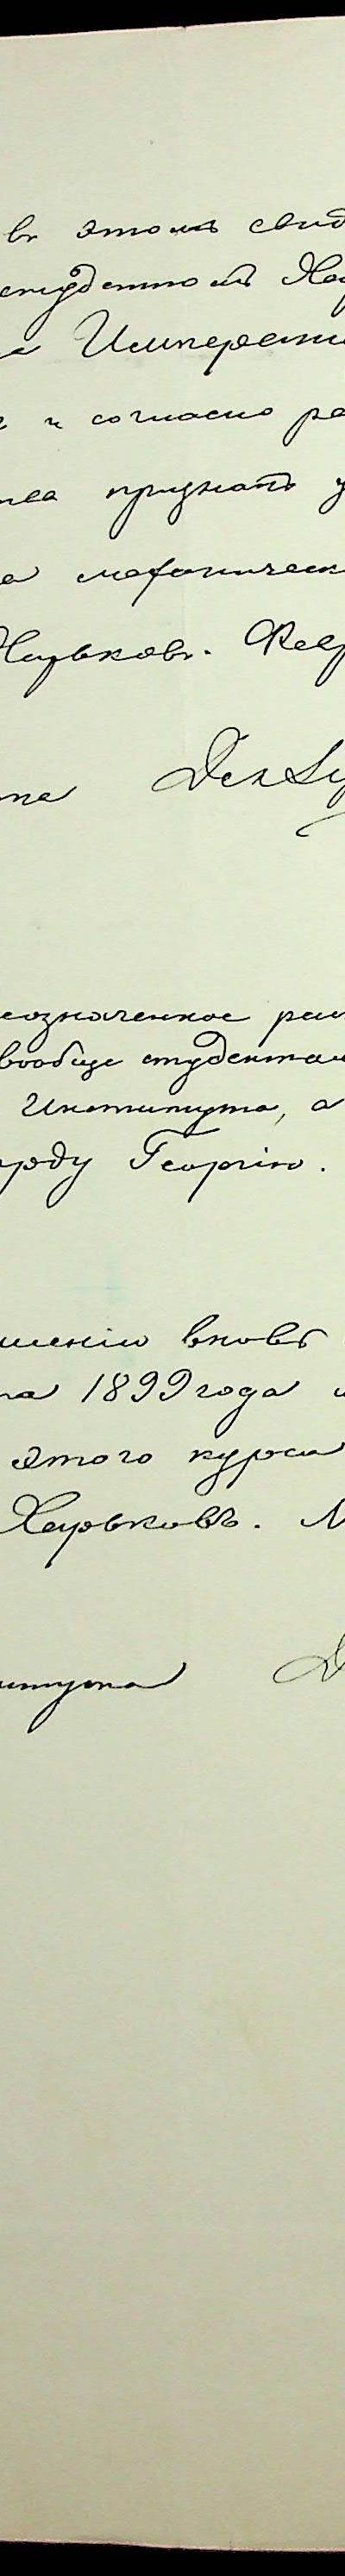 въ этомъ свид
студентомъ Хар
Императо
и согласно ра
признать у
механическ
Харьковъ. Февр
еозначенное рас
вообще студентам
Института, а
роду Георгію.
шенію вновь
на 1899 года и
этого курса
Харьковъ. М
итута Д